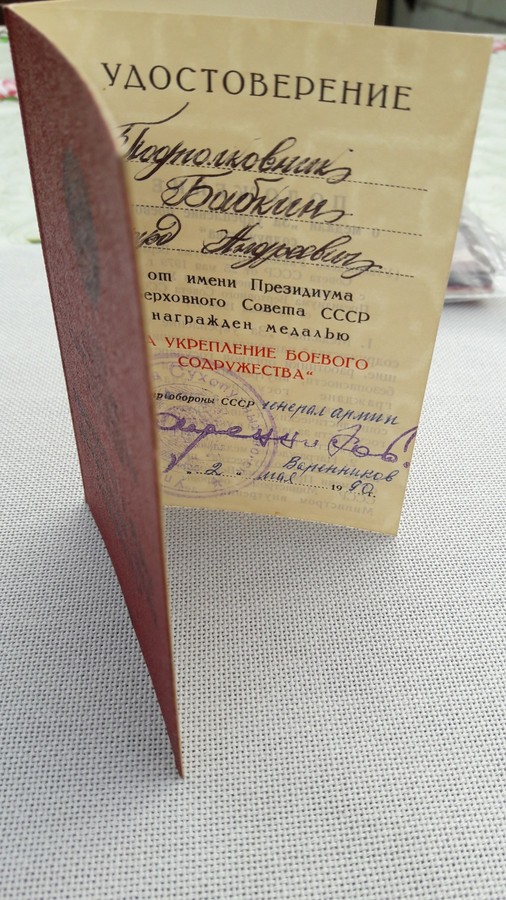 УДОСТОВЕРЕНИЕ
Подполковник
Бабкин
Андреевич
от имени Президиума
ерховного Совета СССР
награжден медалью
А УКРЕПЛЕНИЕ БОЕВОГО
СОДРУЖЕСТВА“
обороны СССР генерал армии
Варенников
2 " мая 1990